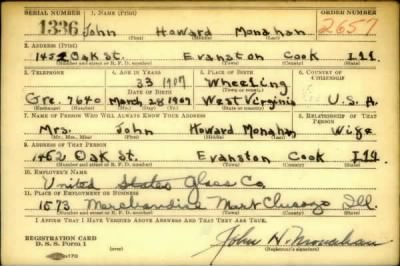 SERIAL NUMBER 1. NAME (Print) ORDER NUMBER
1336 John Howard Monahan 2657
(First) (Middle) (Last)
2. ADDRESS (Print)
1452 Oak St. Evanston Cook Ill.
(Number and street or R. F. D. number) (Town) (County) (State)
3. TELEPHONE 4. AGE IN YEARS 5. PLACE OF BIRTH 6. COUNTRY OF CITIZENSHIP
33 1907 Wheeling
DATE OF BIRTH (Town or county)
Gre. 7640 March 28 1907 West Virginia U.S.A.
(Exchange) (Number) (Mo.) (Day) (Yr.) (State or country)
7. NAME OF PERSON WHO WILL ALWAYS KNOW YOUR ADDRESS 8. RELATIONSHIP OF THAT PERSON
Mrs. John Howard Monahan Wife
(Mr., Mrs., Miss) (First) (Middle) (Last)
9. ADDRESS OF THAT PERSON
1452 Oak St. Evanston Cook Ill.
(Number and street or R. F. D. number) (Town) (County) (State)
10. EMPLOYER'S NAME
United States Glass Co.
11. PLACE OF EMPLOYMENT OR BUSINESS
1573 Merchandise Mart Chicago Ill.
(Number and street or R. F. D. number) (Town) (County) (State)
I AFFIRM THAT I HAVE VERIFIED ABOVE ANSWERS AND THAT THEY ARE TRUE.
REGISTRATION CARD
D. S. S. Form 1 John H. Monahan
(Registrant's signature)